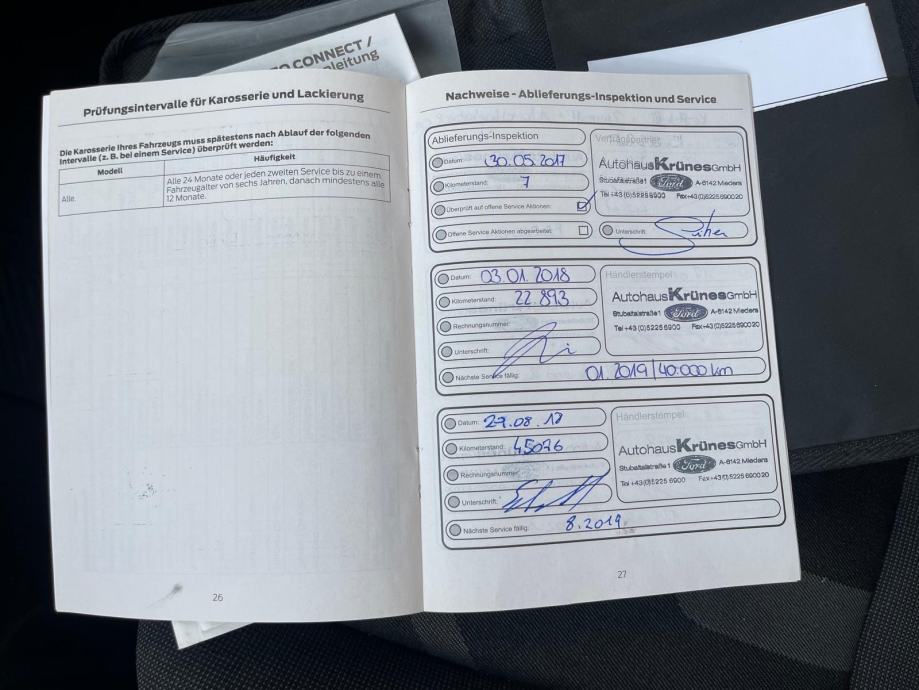 O CONNECT /
leitung
Prüfungsintervalle für Karosserie und Lackierung
Die Karosserie Ihres Fahrzeugs muss spätestens nach Ablauf der folgenden
Intervalle (z. B. bei einem Service) überprüft werden:
Modell
Häufigkeit
Alle.
Alle 24 Monate oder jeden zweiten Service bis zu einem
Fahrzeugalter von sechs Jahren, danach mindestens alle
12 Monate.
26
Nachweise - Ablieferungs-Inspektion und Service
Ablieferungs-Inspektion
Datum: 30.05.2017
Kilometerstand: 7
Überprüft auf offene Service Aktionen:
Offene Service Aktionen abgearbeitet:
Vertragspartner
Autohaus Krünes GmbH
Stubaitalstraße 1 Ford A-6142 Mieders
Tel +43(0)5225 6900 Fax+43(0)5225 690020
Unterschrift:
Datum: 03.01.2018
Kilometerstand: 22.893
Rechnungsnummer:
Unterschrift:
Nächste Service fällig: 01.2019/40.000km
Händlerstempel
Autohaus Krünes GmbH
Stubaitalstraße 1 Ford A-6142 Mieders
Tel +43(0)5225 6900 Fax+43(0)5225 690020
Datum: 27.08.18
Kilometerstand: 45026
Rechnungsnummer:
Unterschrift:
Nächste Service fällig: 8.2019
Händlerstempel
Autohaus Krünes GmbH
Stubaitalstraße 1 Ford A-6142 Mieders
Tel +43(0)5225 6900 Fax+43(0)5225 690020
27